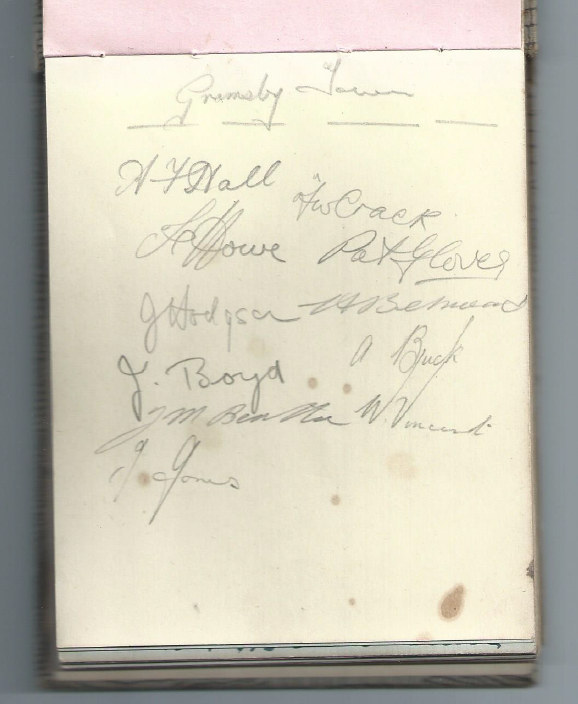 Grimsby Town
H F Hall
F W Crack
F Howe
Pat Glover
J Hodgson
J. Boyd
A Buck
J M
W. Vincent
J Jones